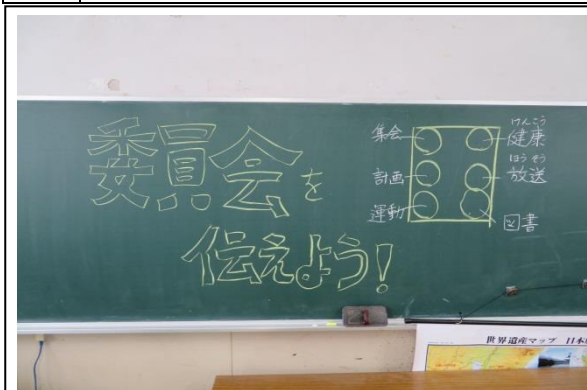 委員会を
伝えよう!
集会
計画
運動
けんこう
健康
ほうそう
放送
図書
世界遺産マップ 日本